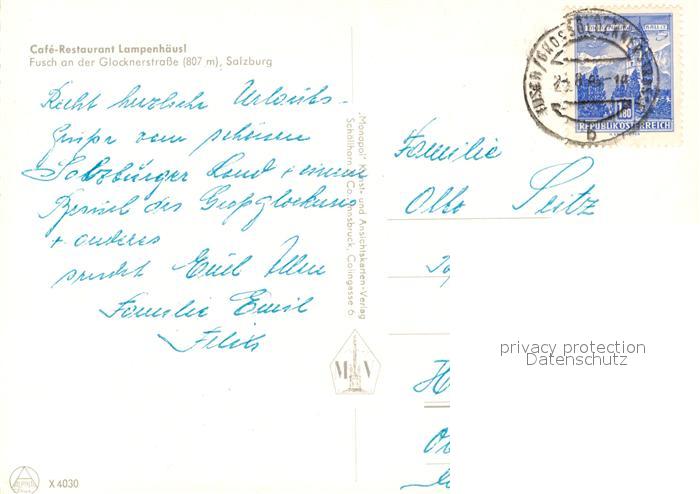 Café-Restaurant Lampenhäusl
Fusch an der Glocknerstraße (807 m), Salzburg
Recht herzliche Urlaubs-
Grüße vom schönen
Salzburger Land + einem
Besuch des Großglockners
+ anderes
sendet Euch Allen
Familie Emil
Felix
"Monopol" Kunst- und Ansichtskarten-Verlag
Schöllhorn & Co. Innsbruck, Colingasse 6
M V
X 4030
1.80
REPUBLIK ÖSTERREICH
b
Familie
Otto Seitz
privacy protection
Datenschutz